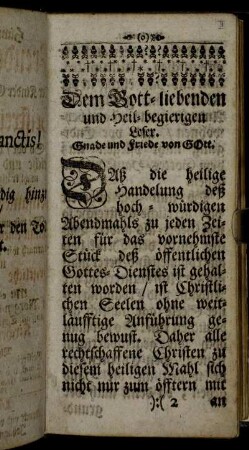 (o)
Dem Gott-liebenden
und Heil-begierigen
Leser.
Gnade und Friede von GOtt.
DAß die heilige
Handelung deß
hoch-würdigen
Abendmahls zu jeden Zei-
ten für das vornehmste
Stück deß öffentlichen
Gottes-Dienstes ist gehal-
ten worden / ist Christli-
chen Seelen ohne weit-
läufftige Anführung ge-
nug bewust. Daher alle
rechtschaffene Christen zu
diesem heiligen Mahl sich
nicht nur zum öfftern mit
):( 2 an
anctis!
dig hinz
er den To
t.